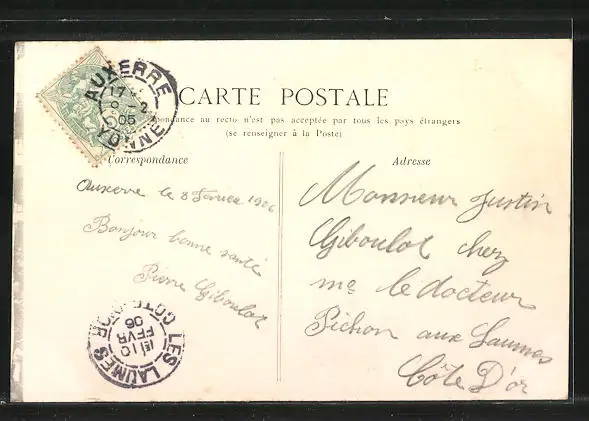 CARTE POSTALE
pondance au recto n'est pas acceptée par tous les pays étrangers
(se renseigner à la Poste)
Correspondance
Adresse
AUXERRE
17
8 - 2
05
YONNE
Auxerre le 8 Février 1906
Bonjour bonne santé
Pierre Giboulot
Monsieur Justin
Giboulot chez
me le docteur
Pichon aux Laumes
Côte D'or
LES LAUMES
COTE-D'OR
10
FEVR
06